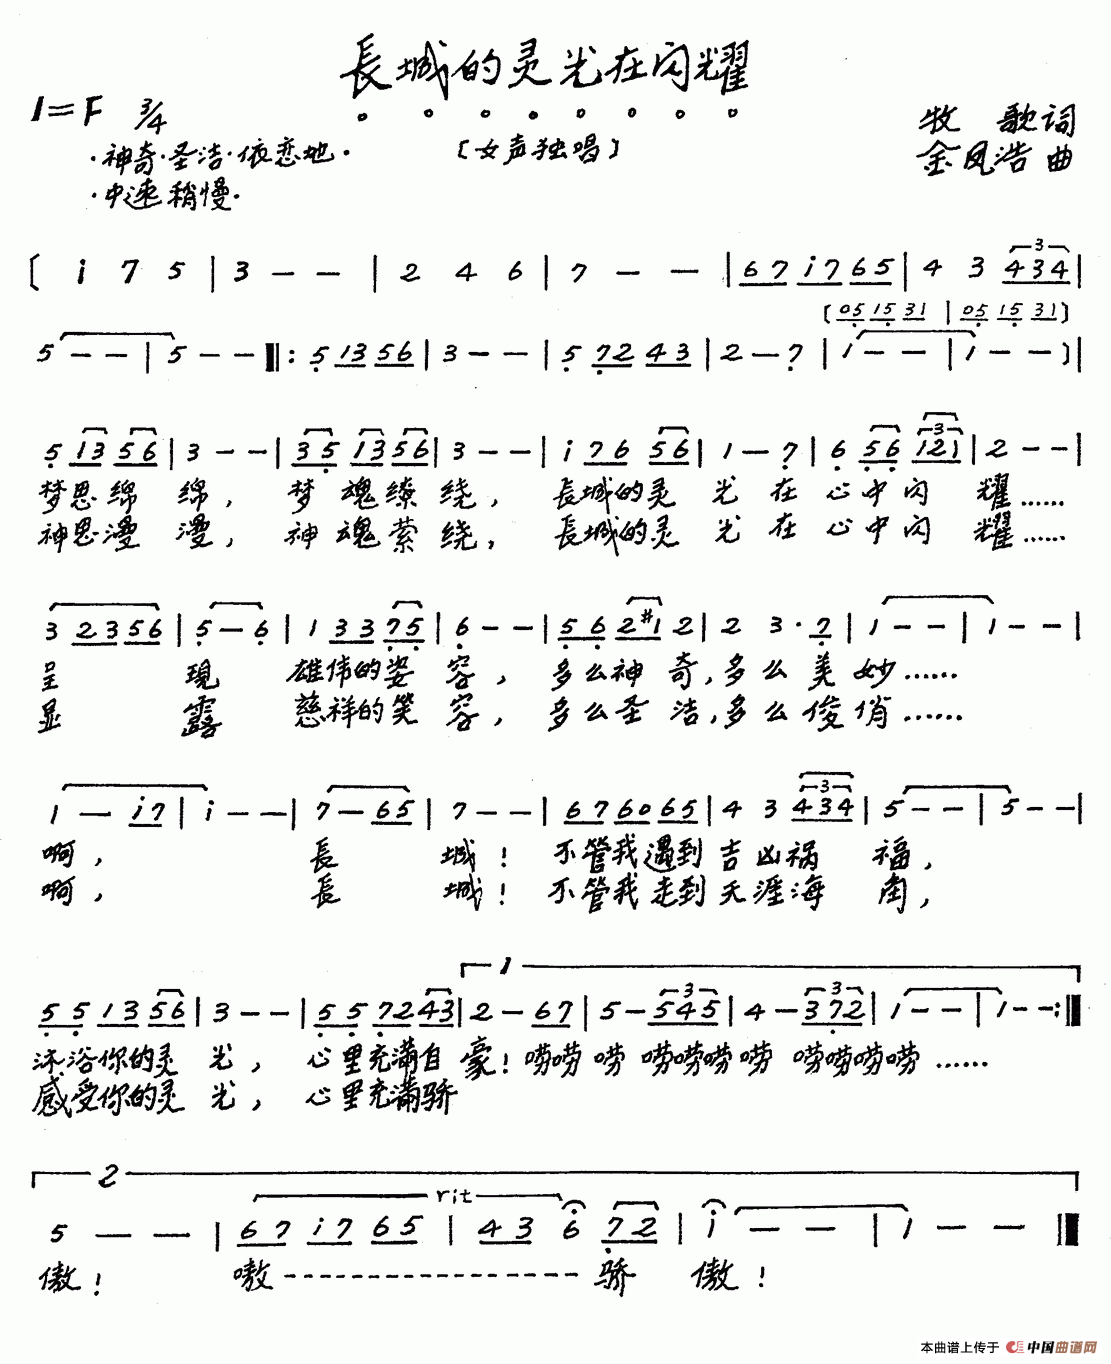 長城的灵光在闪耀
1=F 3/4
牧 歌词
·神奇·圣洁·依恋地·
〔女声独唱〕
金凤浩 曲
·中速稍慢·
〔 i 7 5 | 3 - - | 2 4 6 | 7 - - | 67 i7 65 | 4 3 434 |
〔05 15 31 | 05 15 31〕
5 - - | 5 - - ‖: 5 13 56 | 3 - - | 5 72 43 | 2 - 7 | 1 - - | 1 - - 〕|
5 13 56 | 3 - - | 35 13 56 | 3 - - | i 76 56 | 1 - 7 | 6 56 121 | 2 - - |
梦思绵 绵， 梦 魂缭 绕， 長城的灵 光 在 心中闪 耀……
神思漫 漫， 神 魂萦 绕， 長城的灵 光 在 心中闪 耀……
3 23 56 | 5 - 6 | 1 33 75 | 6 - - | 56 2#1 2 | 2 3· 7 | 1 - - | 1 - - |
呈 现 雄伟的姿 容， 多么神 奇，多么 美 妙……
显 露 慈祥的笑 容， 多么圣 洁，多么 俊 俏……
1 - i7 | i - - | 7 - 65 | 7 - - | 67 60 65 | 4 3 434 | 5 - - | 5 - - |
啊， 長 城！ 不管我遇到 吉凶祸 福，
啊， 長 城！ 不管我走到 天涯海 角，
1
55 13 56 | 3 - - | 55 72 43 | 2 - 67 | 5 - 545 | 4 - 372 | 1 - - | 1 - - :‖
沐浴你的灵 光， 心里充满自 豪！唠唠 唠 唠唠唠唠 唠唠唠唠……
感受你的灵 光， 心里充满骄
2
rit
5 - - | 67 i7 65 | 43 6 72 | i - - | 1 - - ‖
傲！ 嗷-------------------骄 傲！
本曲谱上传于 中国曲谱网